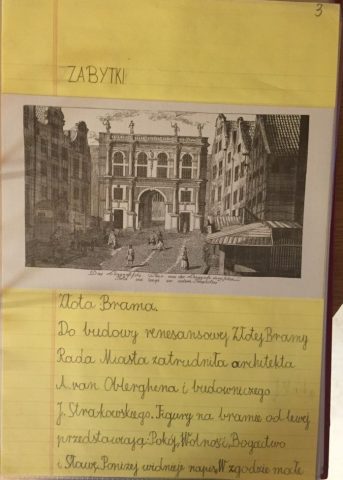 3
ZABYTKI
Złota Brama.
Do budowy renesansowej Złotej Bramy
Rada Miasta zatrudniła architekta
A. van Obberghena i budowniczego
J. Strakowskiego. Figury na bramie od lewej
przedstawiają: Pokój, Wolność, Bogactwo
i Sławę. Poniżej widnieje napis „W zgodzie małe